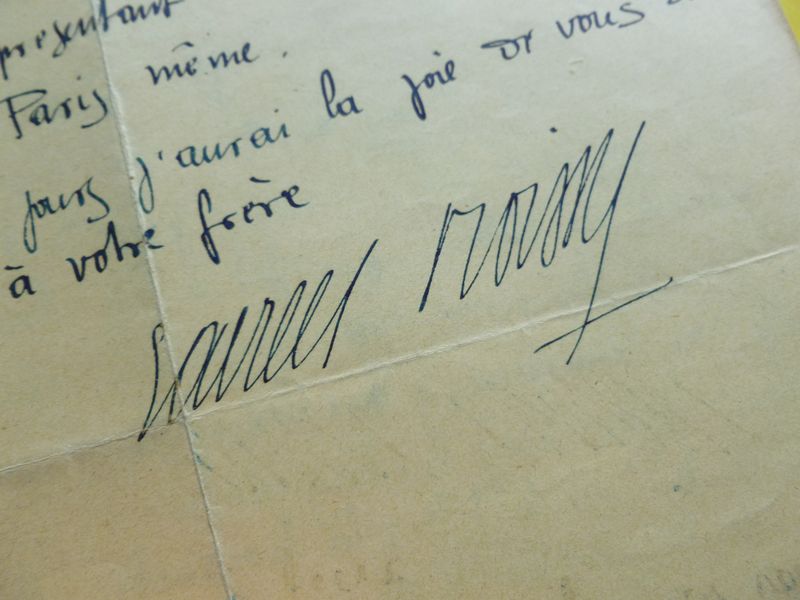 présentant
Paris même.
jours j'aurai la joie de vous
à votre frère